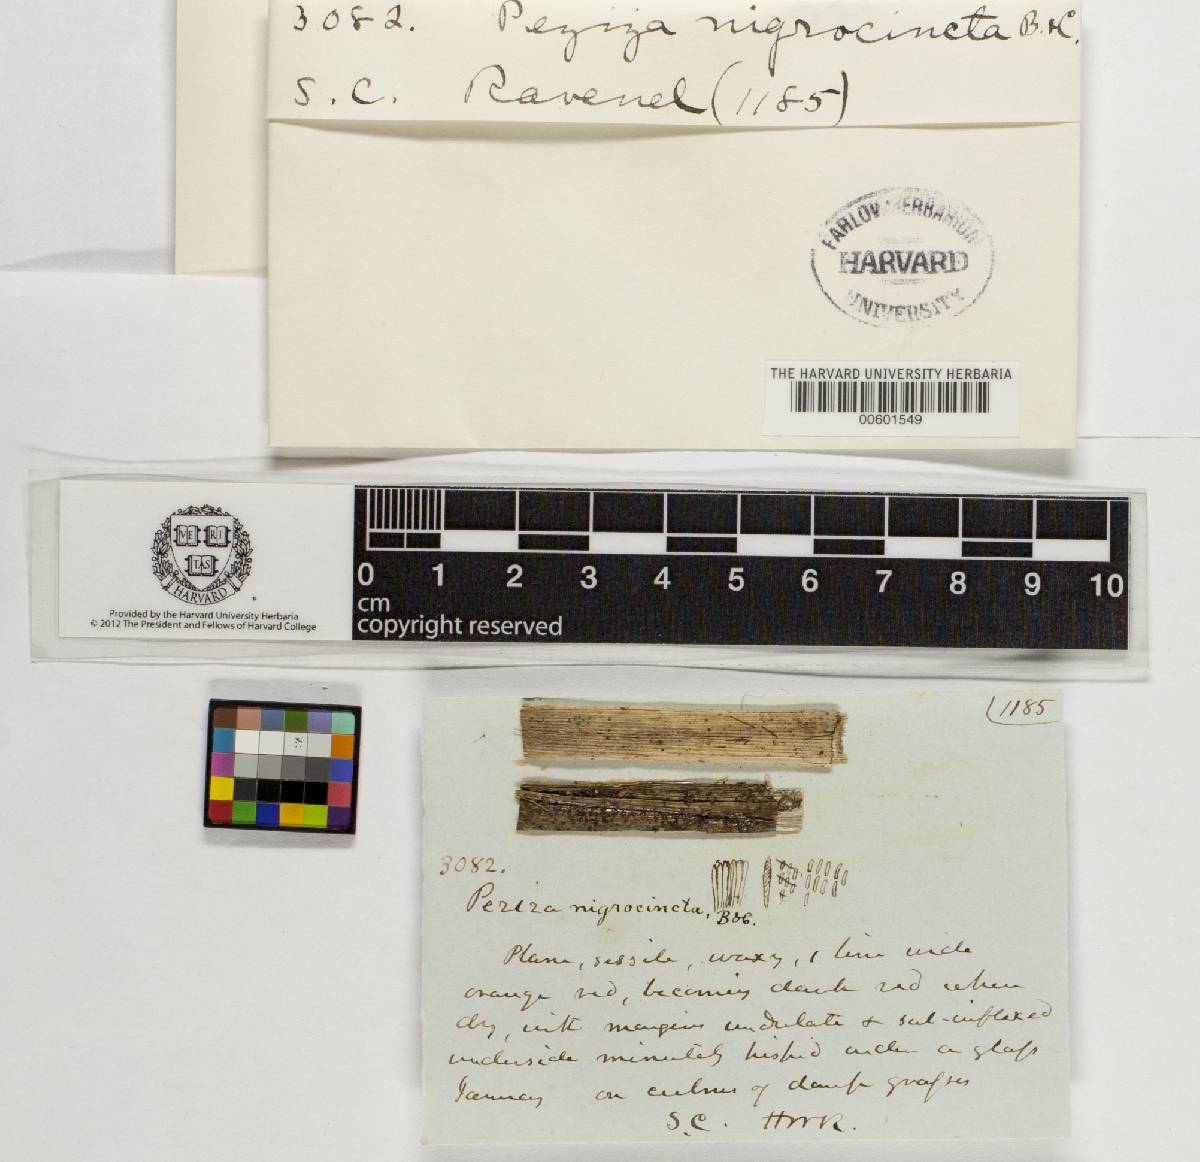 3082. Peziza nigrocincta B.&C.
S.C. Ravenel (1185)
FARLOW HERBARIUM
HARVARD
UNIVERSITY
THE HARVARD UNIVERSITY HERBARIA
00601549
VE RI
TAS
HARVARD
Provided by the Harvard University Herbaria
© 2012 The President and Fellows of Harvard College
0 1 2 3 4 5 6 7 8 9 10
cm
copyright reserved
(1185
3082.
Peziza nigrocincta, B&C.
Plane, sessile, waxy, 1 line wide
orange red, becoming dark red when
dry, with margins undulate & sub-inflexed
underside minutely hispid under a glass
January on culms of damp grasses
S.C. HWR.